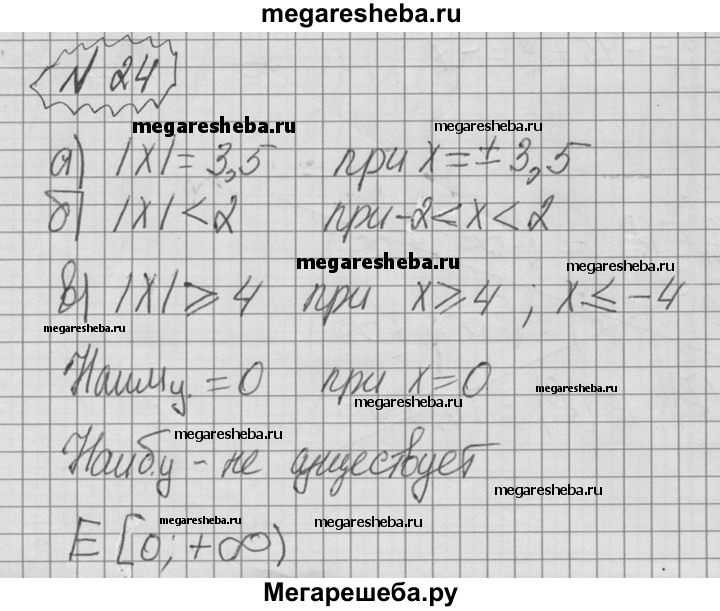 megaresheba.ru
N 24
megaresheba.ru megaresheba.ru
а) |x| = 3,5 при x = ± 3,5
б) |x| < 2 при -2 < x < 2
megaresheba.ru megaresheba.ru
в) |x| ⩾ 4 при x ⩾ 4 ; x ⩽ -4
megaresheba.ru megaresheba.ru
Наим y. = 0 при x = 0
megaresheba.ru megaresheba.ru
megaresheba.ru
Наиб.y - не существует
megaresheba.ru
megaresheba.ru megaresheba.ru
E [0; +∞)
Мегарешеба.ру